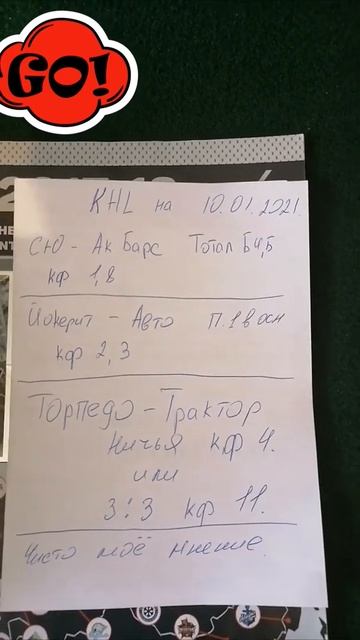 GO!
KHL на 10.01.2021.
СЮ - Ак Барс Тотал Б4,5
кф 1,8
Йокерит - Авто П.1 в осн
кф 2,3
Торпедо - Трактор
Ничья кф 4.
или
3:3 кф 11.
Чисто моё мнение.